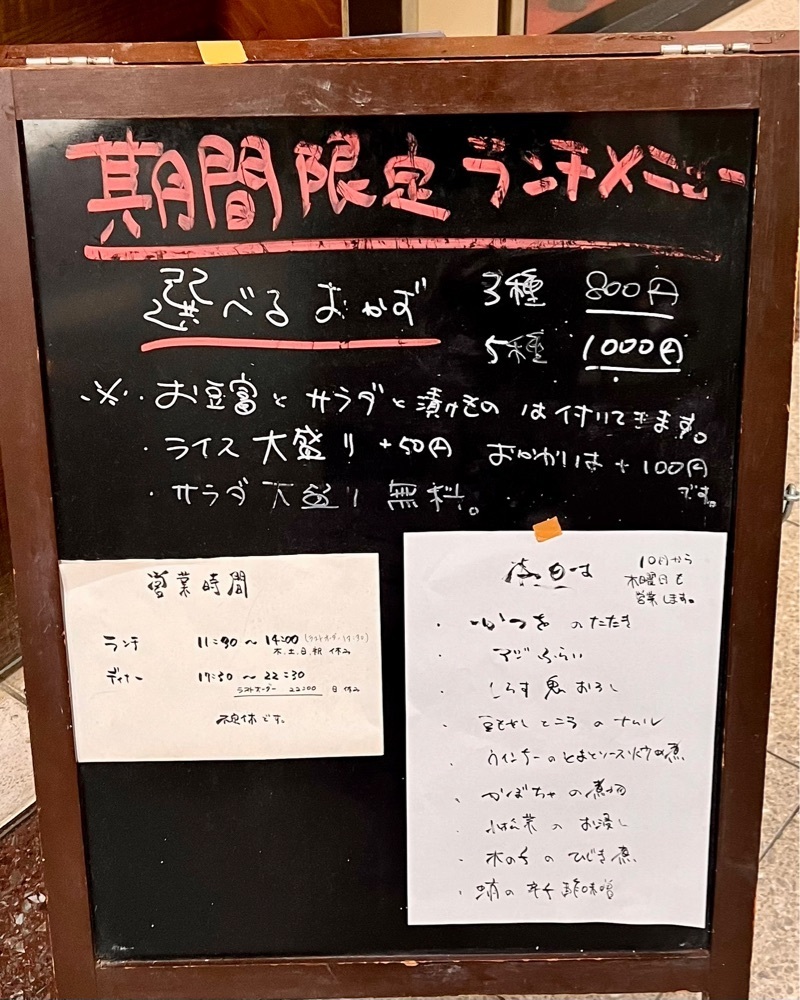 期間限定ランチメニュー
選べるおかず
3種 800円
5種 1000円
※・お豆富とサラダと漬けもの は付いてきます。
・ライス大盛り +50円 おかわりは +100円です。
・サラダ大盛り 無料。
営業時間
ランチ 11:30~14:00(ラストオーダー13:30)
木.土.日.祝 休み
ディナー 17:30~22:30
ラストオーダー 22:00 日 休み
不定休です。
本日は
10月から
木曜日も
営業します。
・かつをのたたき
・アジふらい
・しらす鬼おろし
・豆もやしとニラのナムル
・ウインナーのとまとソース炒め煮
・かぼちゃの煮物
・小松菜のお浸し
・木の子のひじき煮
・蛸の辛子酢味噌